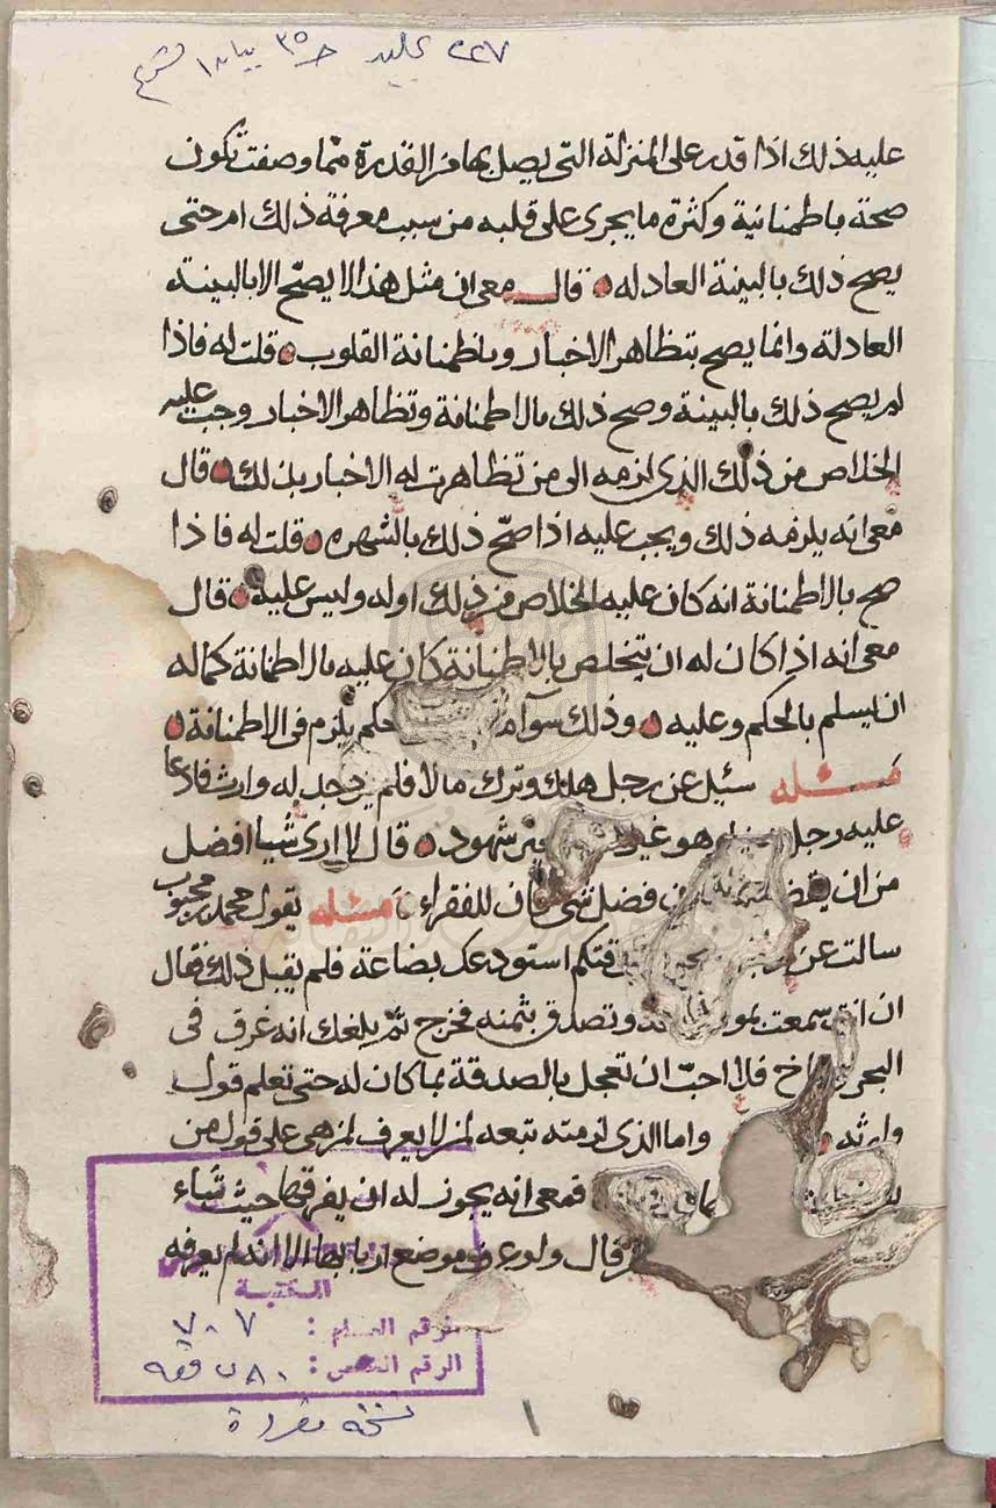 عليه ذلك اذا قدر على المنزلة التي يصل بها من القدرة مما وصفت تكون
صحة باطمنانية وكثرة ما يجرى على قلبه من سبب معرفة ذلك ام حتى
يصح ذلك بالبينة العادله قال معي ان مثل هذا لا يصح الا بالبينة
العادلة وانما يصح بتظاهر الاخبار وباطمنانة القلوب قلت له فاذا
لم يصح ذلك بالبينة وصح ذلك بالاطمنانة وتظاهر الاخبار وجب عليه
الخلاص من ذلك الذي لزمه الى من تظاهرت له الاخبار بذلك قال
معي انه يلزمه ذلك ويجب عليه اذا صح ذلك بالشهره قلت له فاذا
صح بالاطمنانة انه كان عليه الخلاص من ذلك اوله وليس عليه قال
معي انه اذا كان له ان يتخلص بالاطمنانة كان عليه بالاطمانة كما له
ان يسلم بالحكم وعليه وذلك سوآ حكم يلزم في الاطمنانة
مسئله سئيل عن رجل هلك وترك مالا فلم يوجد له وارث فادعا
عليه رجل هو غير شهود قال لا ارى شيا افضل
من ان فضل شي كان للفقراء مسئله يقول محمد بن محبوب
سالت عن استودعك بضاعة فلم يقبل ذلك فقال
ان انت سمعت وتصدق بثمنه فخرج ثم بلغك انه غرق في
البحر فلا احب ان تعجل بالصدقة بما كان له حتى تعلم قول
وارثه واما الذي لزمته تبعه لمن لا يعرف لمن هي على قول من
فمعي انه يجوز له ان يفرقها حيث شاء
قال ولو عرف موضع اربابها الا انه لم يعرفه
المكتبة
الرقم العام : ٧٠٧
الرقم الخاص : ٨٠ فقه